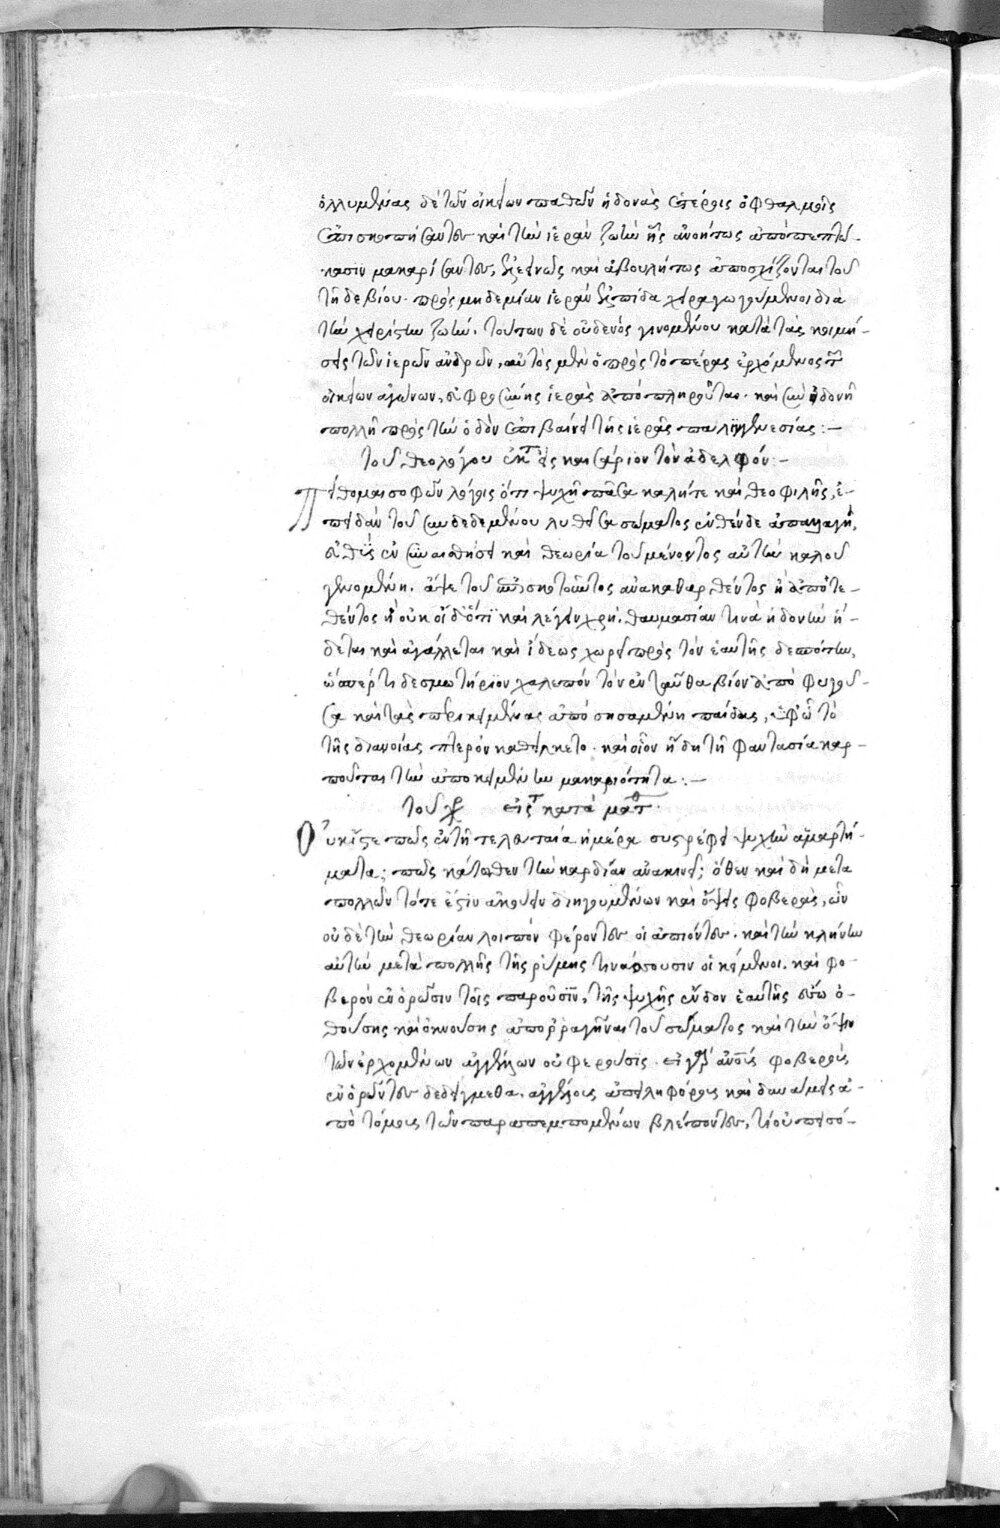 ὀλλυμένας δὲ τῶν οἰκείων παθῶν ἡδονὰς στερροῖς ὀφθαλμοῖς
ἐπισκοπήσαντες καὶ τὴν ἱερὰν ζωὴν ἧς ἀνοήτως ἀποπεπτώ-
κασιν μακαρίσαντες, ἐλεεινῶς καὶ ἀβουλήτως ἀποσχίζονται τοῦ
τῇδε βίου. πρὸς μηδεμίαν ἱερὰν ἐλπίδα χειραγωγούμενοι διὰ
τὴν χειρίστην ζωήν. τούτων δὲ οὐδενὸς γινομένου κατὰ τὰς κοιμή-
σεις τῶν ἱερῶν ἀνδρῶν, αὐτὸς μὲν ὁ πρὸς τὸ πέρας ἐρχόμενος τῶν
οἰκείων ἀγώνων, εὐφροσύνης ἱερᾶς ἀποπληροῦται. καὶ σὺν ἡδονῇ
πολλῇ πρὸς τὴν ὁδὸν ἐπιβαίνει τῆς ἱερᾶς παλιγγενεσίας:–
τοῦ θεολόγου ἐκ τοῦ εἰς καισάριον τὸν ἀδελφόν:–
Πείθομαι σοφῶν λόγοις ὅτι ψυχὴ πᾶσα καλή τε καὶ θεοφιλής, ἐ-
πειδὰν τοῦ συνδεδεμένου λυθεῖσα σώματος ἐνθένδε ἀπαλλαγῇ,
εὐθὺς ἐν συναισθήσει καὶ θεωρία τοῦ μένοντος αὐτὴν καλοῦ
γενομένη. ἅτε τοῦ ἐπισκοτοῦντος ἀνακαθαρθέντος ἢ ἀποτε-
θέντος ἢ οὐκ οἶδ' ὅτι καὶ λέγειν χρή. θαυμασίαν τινὰ ἡδονὴν ἥ-
δεται καὶ ἀγάλλεται καὶ ἵλεως χωρεῖ πρὸς τὸν ἑαυτῆς δεσπότην,
ὥσπερ τι δεσμωτήριον χαλεπὸν τὸν ἐνταῦθα βίον ἀποφυγοῦ-
σα καὶ τὰς περικειμένας ἀποσεισαμένη παίδας, ἐφ' ᾧ τὸ
τῆς διανοίας πτερὸν καθείλκετο. καὶ οἷον ἤδη τῇ φαντασία καρ-
ποῦται τὴν ἀποκειμένην μακαριότητα:–
τοῦ χρ εἰς τ κατὰ ματθ.
Οὐκ ἴστε πῶς ἐν τῇ τελευταία ἡμέρα συστρέφει ψυχὴν ἁμαρτή-
ματα; πῶς κάτωθεν τὴν καρδίαν ἀνακινεῖ; ὅθεν καὶ δὴ μετα
πολλῶν τότε ἔστιν ἀκούειν διηγουμένων καὶ ὄψεις φοβεράς, ὧν
οὐδὲ τὴν θεωρίαν λοιπὸν φέροντες οἱ ἀπιόντες. καὶ τὴν κλίνην
αὐτὴν μετὰ πολλῆς τῆς ῥύμης τινάσσουσιν οἱ κείμενοι. καὶ φο-
βερὸν ἐνορῶσιν τοῖς παροῦσιν, τῆς ψυχῆς ἔνδον ἑαυτῆς εὖ ὠ-
θούσης καὶ ὀκνούσης ἀπορραγῆναι τοῦ σώματος καὶ τὴν ὄψιν
τῶν ἐρχομένων ἀγγέλων οὐ φερούσης. εἰ γὰρ ἀνοῖς φοβεροὺς
ἐνορῶντες δεδοίκαμεθα. ἀγγέλους ἀπειληφόρους καὶ δυνάμεις ἀ-
ποτόμους τῶν παραπεμπομένων βλέποντες, τί οὐ πεισό-